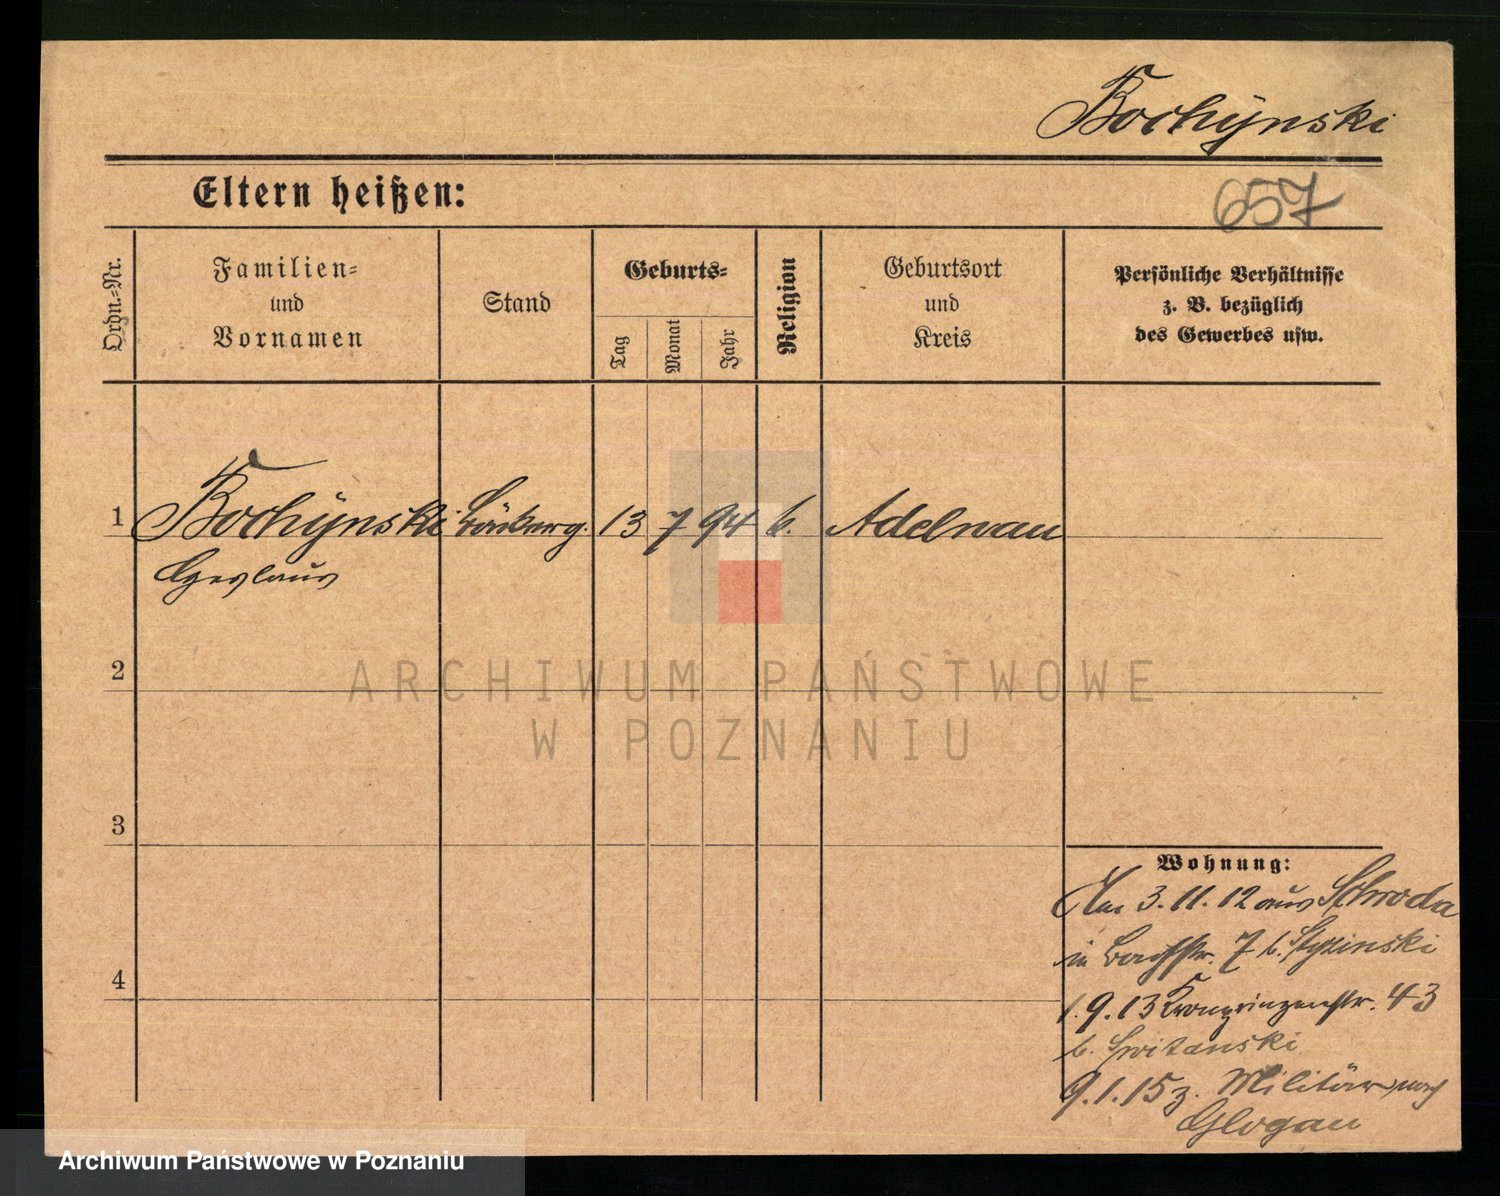 Bochÿnski
Eltern heißen:
657
Ordn.-Nr.
Familien-
und
Vornamen
Stand
Geburts-
Tag
Monat
Jahr
Religion
Geburtsort
und
Kreis
Persönliche Verhältnisse
z. B. bezüglich
des Gewerbes usw.
1 Bochÿnski Bäckerg. 13 7 94 k. Adelnau
Ceslaus
2
3
4
Wohnung:
Am 3.11.12 aus Schroda
in Bachstr. 7 b.
1.9.13 Kronprinzenstr. 43
b. Switanski
9.1.15 z. Militär nach
Glogau
ARCHIWUM PAŃSTWOWE
W POZNANIU
Archiwum Państwowe w Poznaniu